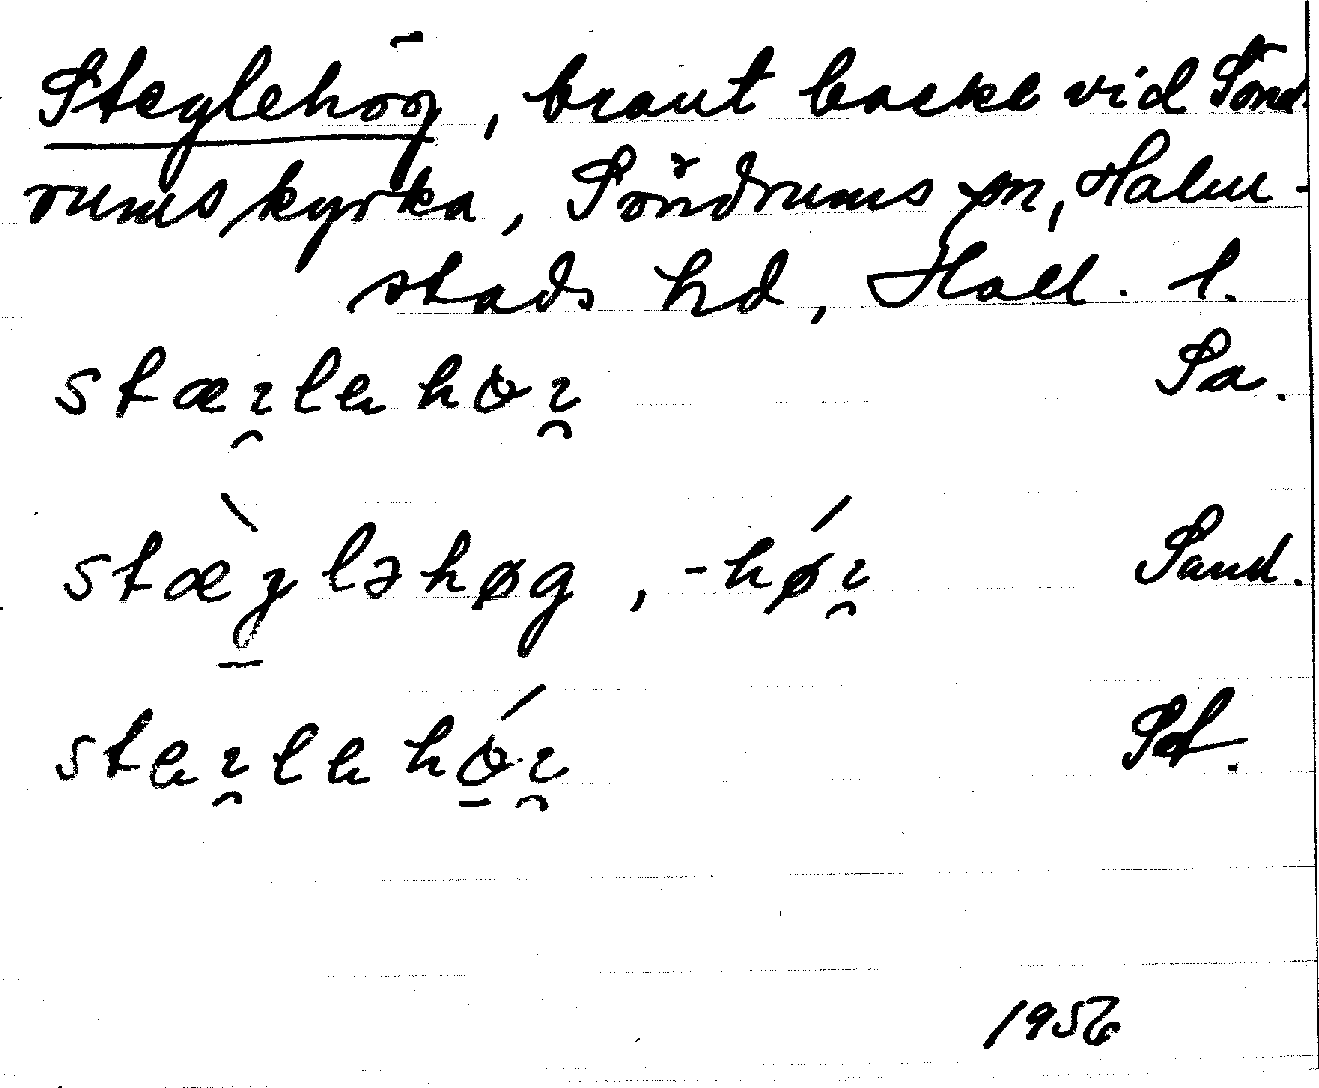 Steglehög, brant backe vid Sönd-
rums kyrka, Söndrums sn, Halm-
stads hd, Hall. l.
stæ̯ɪlahöɪ̯ Sa.
stæ̀gləhøg, -hǿɪ̯ Sand.
staɪ̯lahö́ɪ̯ Sf.
1956